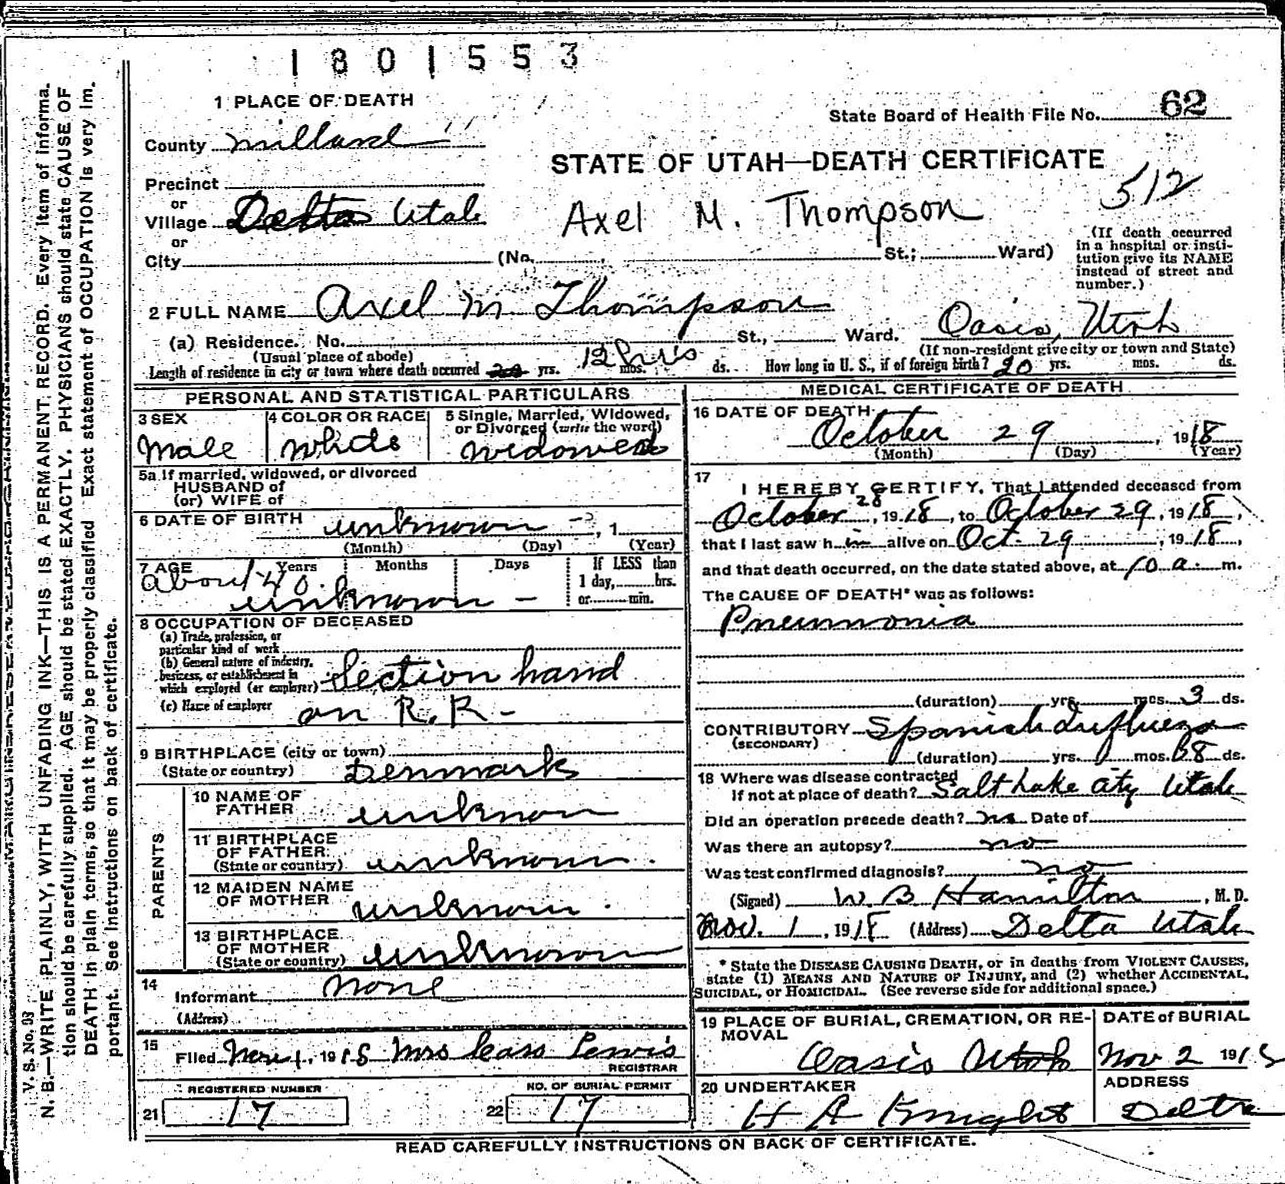 1801553
1 PLACE OF DEATH
State Board of Health File No. 62
County Millard
STATE OF UTAH—DEATH CERTIFICATE
512
Precinct
or
Village Delta Utah
Axel M. Thompson
or
City (No. St.; Ward)
(If death occurred
in a hospital or insti-
tution give its NAME
instead of street and
number.)
2 FULL NAME Axel M. Thompson
(a) Residence. No. St., Ward. Oasis, Utah
(Usual place of abode) (If non-resident give city or town and State)
Length of residence in city or town where death occurred yrs. 12 hrs mos. ds. How long in U. S., if of foreign birth? 20 yrs. mos. ds.
PERSONAL AND STATISTICAL PARTICULARS
3 SEX
Male
4 COLOR OR RACE
White
5 Single, Married, Widowed,
or Divorced (write the word)
widowed
5a If married, widowed, or divorced
HUSBAND of
(or) WIFE of
6 DATE OF BIRTH unknown —, 1
(Month) (Day) (Year)
7 AGE Years Months Days
about 40
unknown —
If LESS than
1 day, hrs.
or min.
8 OCCUPATION OF DECEASED
(a) Trade, profession, or
particular kind of work
(b) General nature of industry,
business, or establishment in
which employed (or employer) Section hand
(c) Name of employer on R. R. -
9 BIRTHPLACE (city or town)
(State or country) Denmark
PARENTS
10 NAME OF
FATHER unknown
11 BIRTHPLACE
OF FATHER
(State or country) unknown.
12 MAIDEN NAME
OF MOTHER unknown.
13 BIRTHPLACE
OF MOTHER
(State or country) unknown
14
Informant none
(Address)
15
Filed Nov 1, 1918 Mrs Cass Lewis
REGISTRAR
REGISTERED NUMBER
21 17
NO. OF BURIAL PERMIT
22 17
MEDICAL CERTIFICATE OF DEATH
16 DATE OF DEATH
October 29, 1918
(Month) (Day) (Year)
17
I HEREBY CERTIFY, That I attended deceased from
October 28, 1918, to October 29, 1918,
that I last saw him alive on Oct. 29, 1918,
and that death occurred, on the date stated above, at 10 a. m.
The CAUSE OF DEATH* was as follows:
Pneumonia
(duration) yrs. mos. 3 ds.
CONTRIBUTORY Spanish Influenza
(SECONDARY)
(duration) yrs. mos. 8 ds.
18 Where was disease contracted
If not at place of death? Salt Lake City Utah
Did an operation precede death? no Date of
Was there an autopsy? no
Was test confirmed diagnosis? no
(Signed) W. B. Hamilton, M. D.
Nov. 1, 1918 (Address) Delta Utah
* State the DISEASE CAUSING DEATH, or in deaths from VIOLENT CAUSES,
state (1) MEANS AND NATURE OF INJURY, and (2) whether ACCIDENTAL,
SUICIDAL, or HOMICIDAL. (See reverse side for additional space.)
19 PLACE OF BURIAL, CREMATION, OR RE-
MOVAL
Oasis Utah
DATE of BURIAL
Nov 2 1918
20 UNDERTAKER
H A Knight
ADDRESS
Delta
READ CAREFULLY INSTRUCTIONS ON BACK OF CERTIFICATE.
V. S. No. 98
N. B.—WRITE PLAINLY, WITH UNFADING INK—THIS IS A PERMANENT RECORD. Every item of informa-
tion should be carefully supplied. AGE should be stated EXACTLY. PHYSICIANS should state CAUSE OF
DEATH in plain terms, so that it may be properly classified. Exact statement of OCCUPATION is very im-
portant. See Instructions on back of certificate.